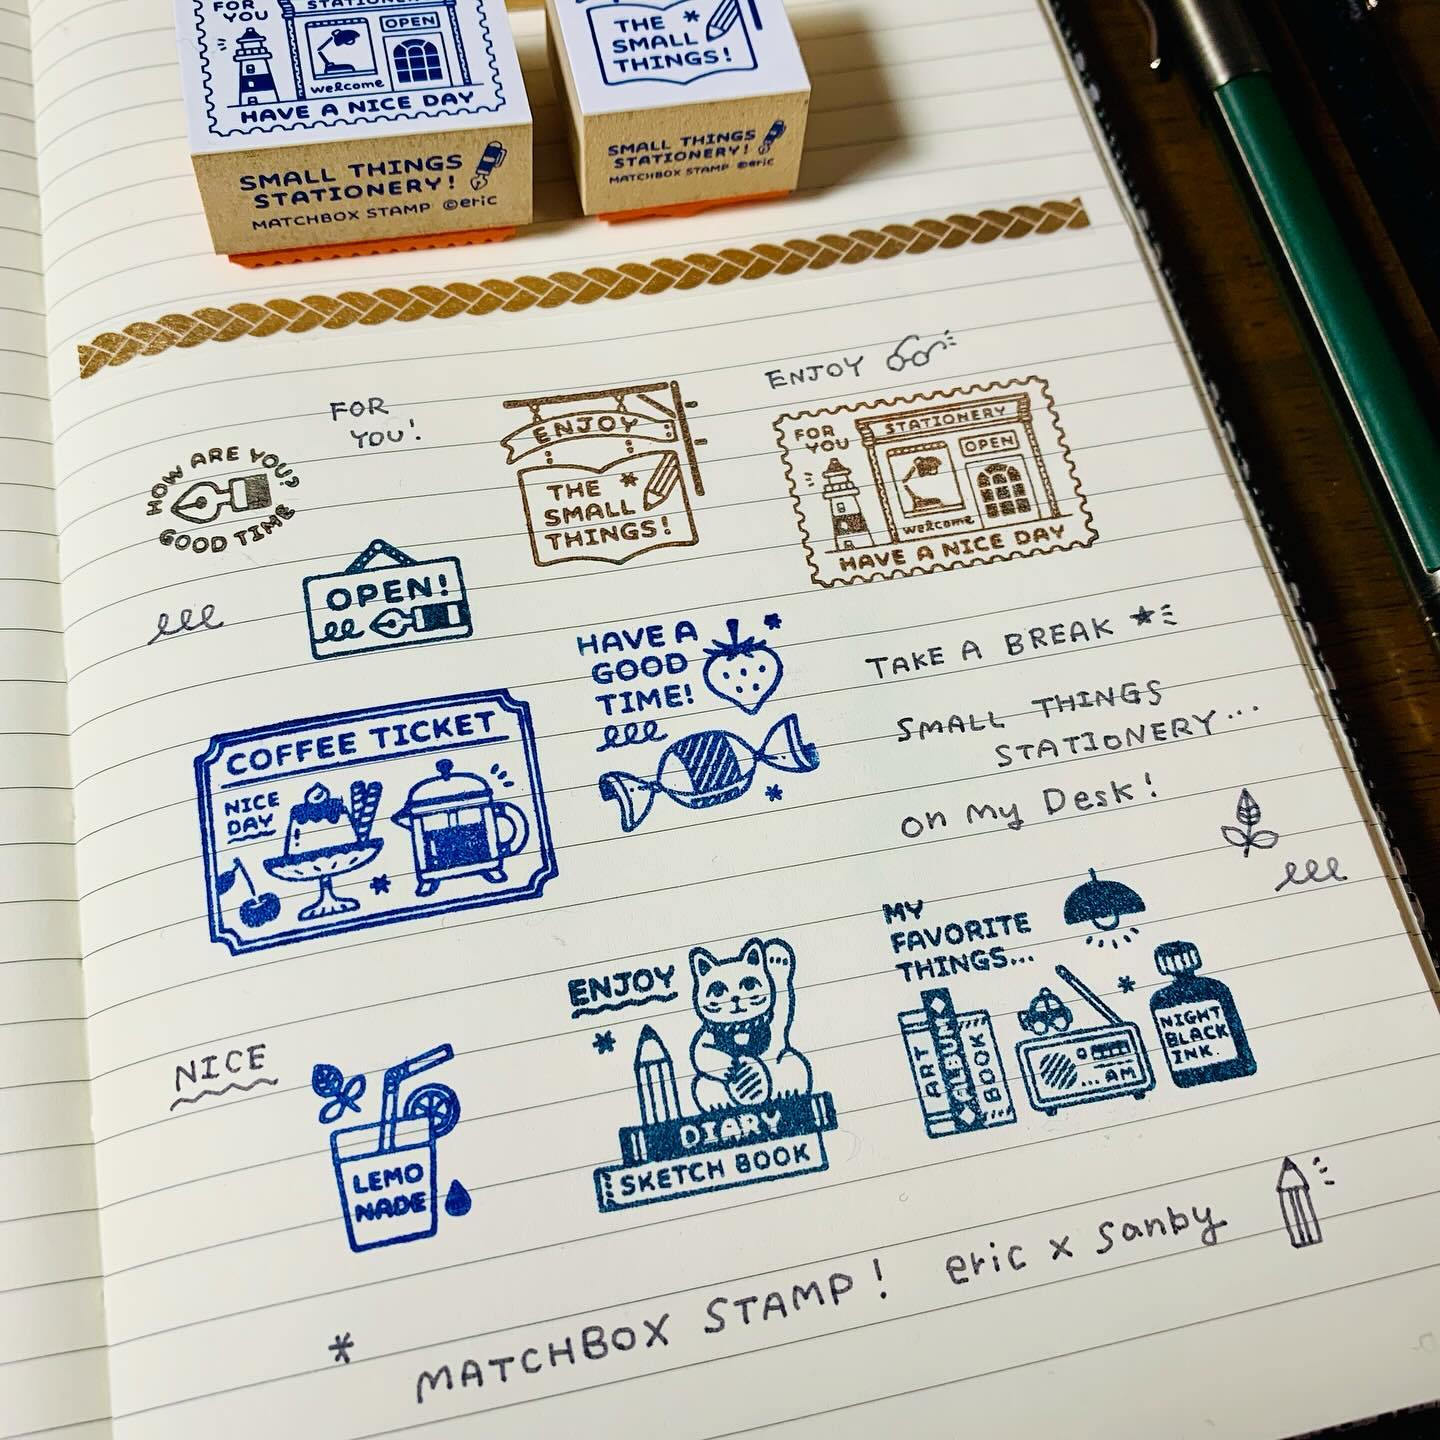 FOR
YOU
STATIONERY
OPEN
welcome
HAVE A NICE DAY
SMALL THINGS
STATIONERY!
MATCHBOX STAMP ©eric
THE
SMALL
THINGS!
SMALL THINGS
STATIONERY!
MATCHBOX STAMP ©eric
FOR
YOU!
ENJOY
HOW ARE YOU?
GOOD TIME
ENJOY
THE
SMALL
THINGS!
FOR
YOU
STATIONERY
OPEN
welcome
HAVE A NICE DAY
OPEN!
HAVE A
GOOD
TIME!
TAKE A BREAK
SMALL THINGS
STATIONERY...
on my Desk!
COFFEE TICKET
NICE
DAY
MY
FAVORITE
THINGS...
ART
ALBUM
BOOK
...AM
NIGHT
BLACK
INK.
ENJOY
DIARY
SKETCH BOOK
NICE
LEMO
NADE
* MATCHBOX STAMP! eric x sanby